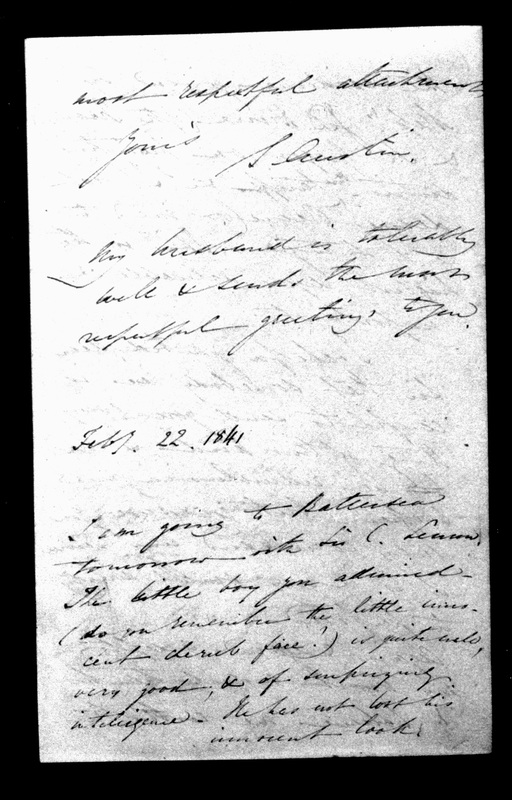 most respectful attachment
Yours S Austin.
My husband is tolerably
well & sends the most
respectful greetings to you.
Feby. 22. 1841
I am going to Battersea
tomorrow with Sir C. Lemon.
The little boy you admired -
(do you remember the little inno-
cent cherub face!) is quite well,
very good, & of surprizing
intelligence - He has not lost his
innocent look.